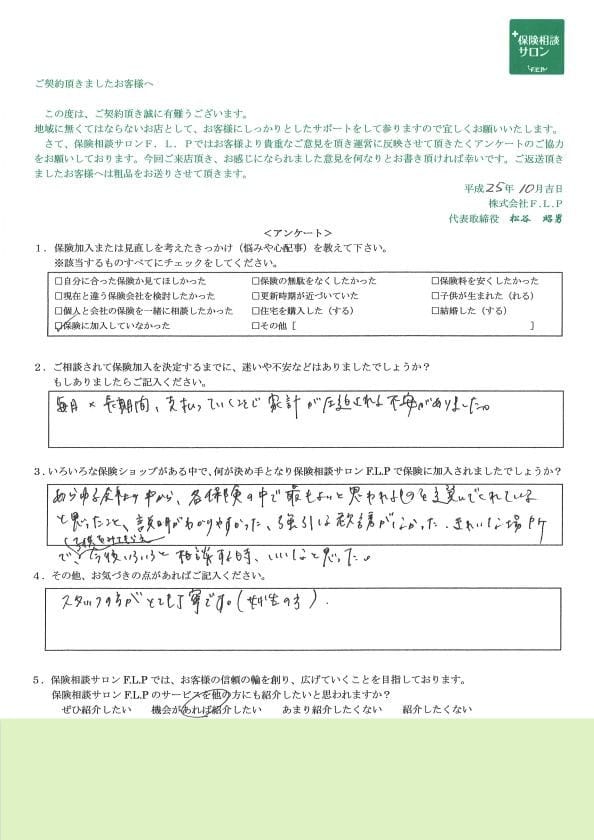 +保険相談
サロン
F.L.P
ご契約頂きましたお客様へ
この度は、ご契約頂き誠に有難うございます。
地域に無くてはならないお店として、お客様にしっかりとしたサポートをして参りますので宜しくお願いいたします。
さて、保険相談サロンF．L．Pではお客様より貴重なご意見を頂き運営に反映させて頂きたくアンケートのご協力
をお願いしております。今回ご来店頂き、お感じになられました意見を何なりとお書き頂ければ幸いです。ご返送頂き
ましたお客様へは粗品をお送りさせて頂きます。
平成25年 10月吉日
株式会社F.L.P
代表取締役 松谷 昭男
＜アンケート＞
１．保険加入または見直しを考えたきっかけ（悩みや心配事）を教えて下さい。
※該当するものすべてにチェックをしてください。
□自分に合った保険か見てほしかった □保険の無駄をなくしたかった □保険料を安くしたかった
□現在と違う保険会社を検討したかった □更新時期が近づいていた □子供が生まれた（れる）
□個人と会社の保険を一緒に相談したかった □住宅を購入した（する） □結婚した（する）
☑保険に加入していなかった □その他［ ］
２．ご相談されて保険加入を決定するまでに、迷いや不安などはありましたでしょうか？
もしありましたらご記入ください。
毎月×長期間、支払っていくことで家計が圧迫される不安がありました。
３.いろいろな保険ショップがある中で、何が決め手となり保険相談サロンF.L.Pで保険に加入されましたでしょうか？
あらゆる会社の中から、各保険の中で最もよいと思われるものを選んでくれている
と思ったこと、説明がわかりやすかった、強引な勧誘がなかった.きれいな場所
で、今後いろいろと相談する時、いいなと思った。
４．その他、お気づきの点があればご記入ください。
スタッフの方がとても丁寧です。(女性の方).
５．保険相談サロンF.L.Pでは、お客様の信頼の輪を創り、広げていくことを目指しております。
保険相談サロンF.L.Pのサービスを他の方にも紹介したいと思われますか？
ぜひ紹介したい 機会があれば紹介したい あまり紹介したくない 紹介したくない